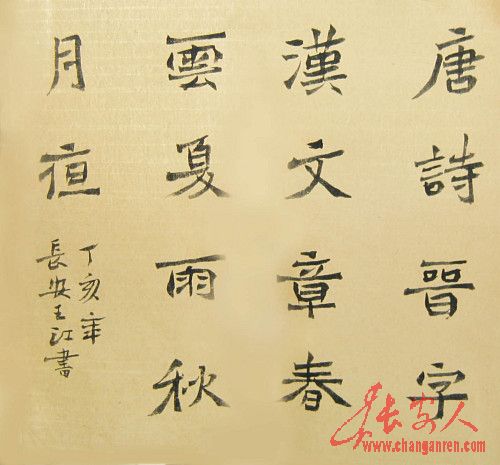 唐詩晉字
漢文章春
雲夏雨秋
月夜
丁亥年
長安王江書
长安人
www.changanren.com